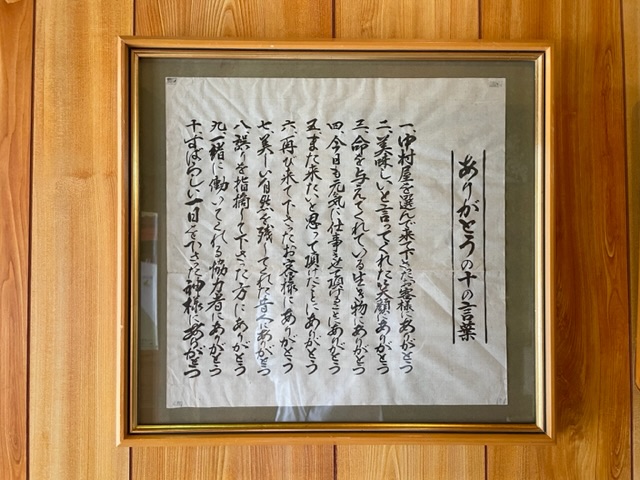 ありがとうの十の言葉
一、中村屋を選んで来て下さったお客様にありがとう
二、美味しいと言ってくれた笑顔にありがとう
三、命を与えてくれている生き物にありがとう
四、今日も元気に仕事させて頂けることにありがとう
五、また来たいと思って頂けたことにありがとう
六、再び来て下さったお客様にありがとう
七、美しい自然を残してくれた昔の人にありがとう
八、誤りを指摘して下さった方にありがとう
九、一緒に働いてくれる協力者にありがとう
十、すばらしい一日を下さった神様にありがとう